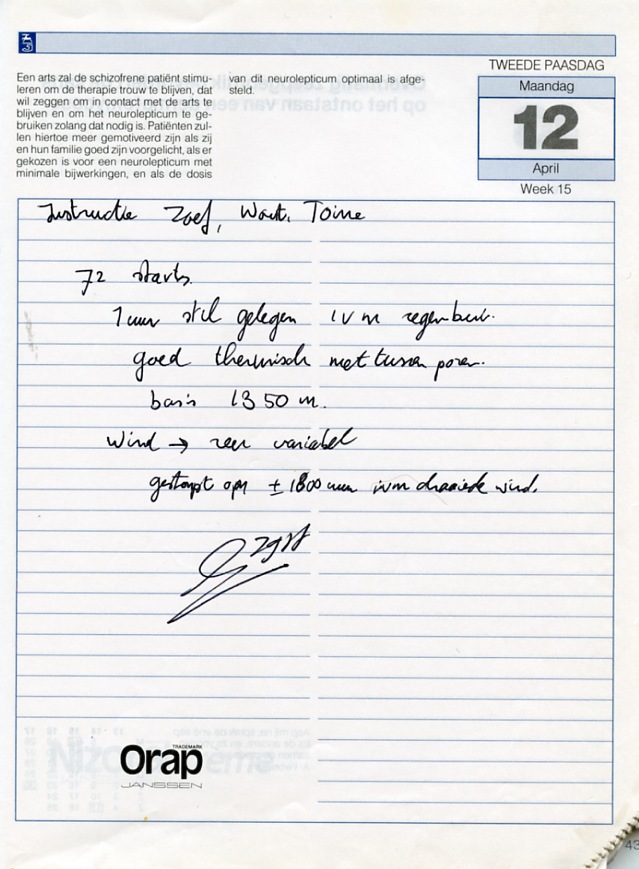 TWEEDE PAASDAG
Maandag
12
April
Week 15
Een arts zal de schizofrene patiënt stimu-
leren om de therapie trouw te blijven, dat
wil zeggen om in contact met de arts te
blijven en om het neurolepticum te ge-
bruiken zolang dat nodig is. Patiënten zul-
len hiertoe meer gemotiveerd zijn als zij
en hun familie goed zijn voorgelicht, als er
gekozen is voor een neurolepticum met
minimale bijwerkingen, en als de dosis
van dit neurolepticum optimaal is afge-
steld.
Instructie Zoef, Wout, Toine
72 starts.
1 uur stil gelegen ivm regenbui.
goed thermisch met tussen pozen.
basis 1350 m.
Wind → zeer variabel
gestopt om ± 1800 uur ivm draaiende wind.
Orap
TRADEMARK
JANSSEN
43